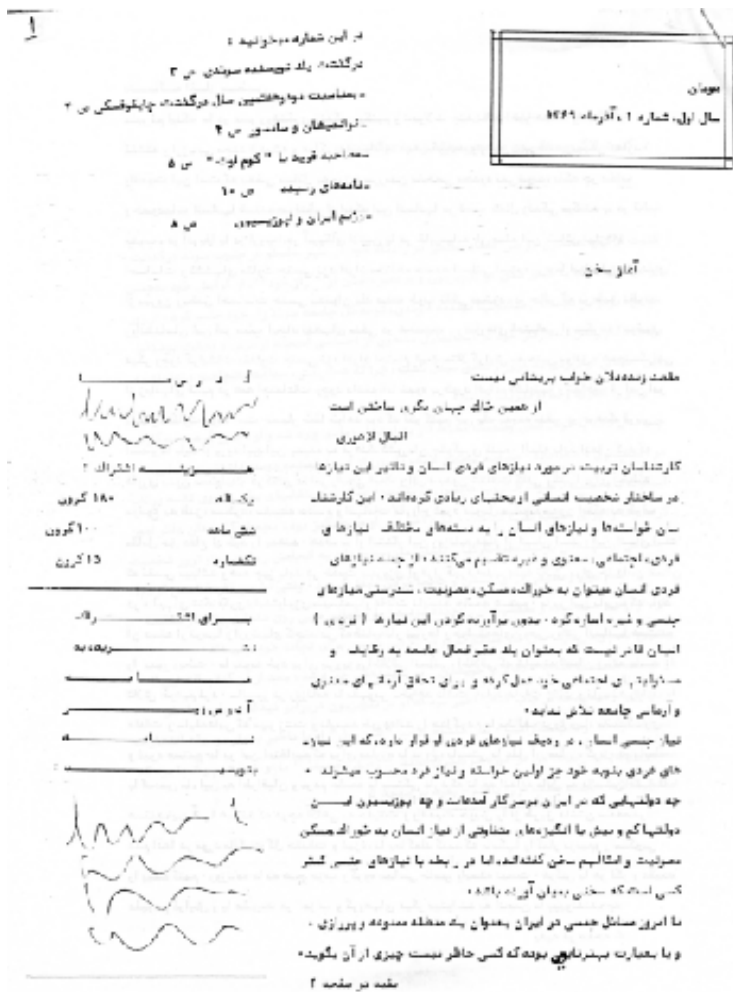 1
در این شماره میخوانید :
درگذشت یک نویسنده سوئدی ص ۳
- بمناسبت دورهشتمین سال درگذشت چایکوفسکی ص ۴
- ترانه‌یشان و سانسور ص ۴
- مصاحبه فرید با " کوم اوت " ص ۵
- نامه‌های رسیده ص ۱۰
- رژیم ایران و اپوزیسیون ص ۸
هومان
سال اول، شماره ۱ ، آذرماه ۱۳۶۹
آغاز سخن
مقصد زنده‌دلان خواب پریشانی نیست
از همین خاک جهان دگری ساختن است
اقبال لاهوری
کارشناسان تربیت، در مورد نیازهای فردی انسان و تاثیر این نیازها
در ساختار شخصیت انسانی ارزیحثهای زیادی کرده‌اند . این کارشنا۔
سان خواسته‌ها و نیازهای انسان را به دسته‌های مختلف نیازهای
فردی، اجتماعی، معنوی و غیره تقسیم میکنند . از جمله نیازهای
فردی انسان میتوان به خوراک، مسکن، مصونیت، تندرستی، نیازهای
جنسی و غیره اشاره کرد . بدون برآورده کردن این نیازها ( فردی )
انسان قادر نیست که بعنوان یک عضو فعال جامعه به وظایف و
مسئولیتهای اجتماعی خود عمل کرده و برای تحقق آرمانهای معنوی
و آرمانی جامعه تلاش نماید .
نیاز جنسی انسان ، در ردیف نیازهای فردی او قرار دارد، که این نیاز۔
های فردی بنوبه خود جز اولین خواسته و نیاز فرد محسوب میشوند .
چه دولتهایی که در ایران بر سر کار آمده‌اند و چه اپوزیسیون ایـــن
دولتها کم و بیش با انگیزه‌های متفاوتی از نیاز انسان به خوراک، مسکن
مصونیت و امثالهم سخن گفته‌اند، اما در رابطه با نیازهای جنسی کمتر
کسی است که سخنی بمیان آورده باشد .
تا امروز مسائل جنسی در ایران بعنوان یک منطقه ممنوعه و پررازی ،
و یا بعبارت بهتر تابویی بوده که کسی حاضر نیست چیزی از آن بگوید .
بقیه در صفحه ۲
آدرس
هزینه اشتراک :
یکساله ۱۸۰ کرون
شش ماهه ۱۰۰ کرون
تکشماره ۱۵ کرون
برای اشتراک
نشریه، به
ما
آدرس
نامه
بنویسید :